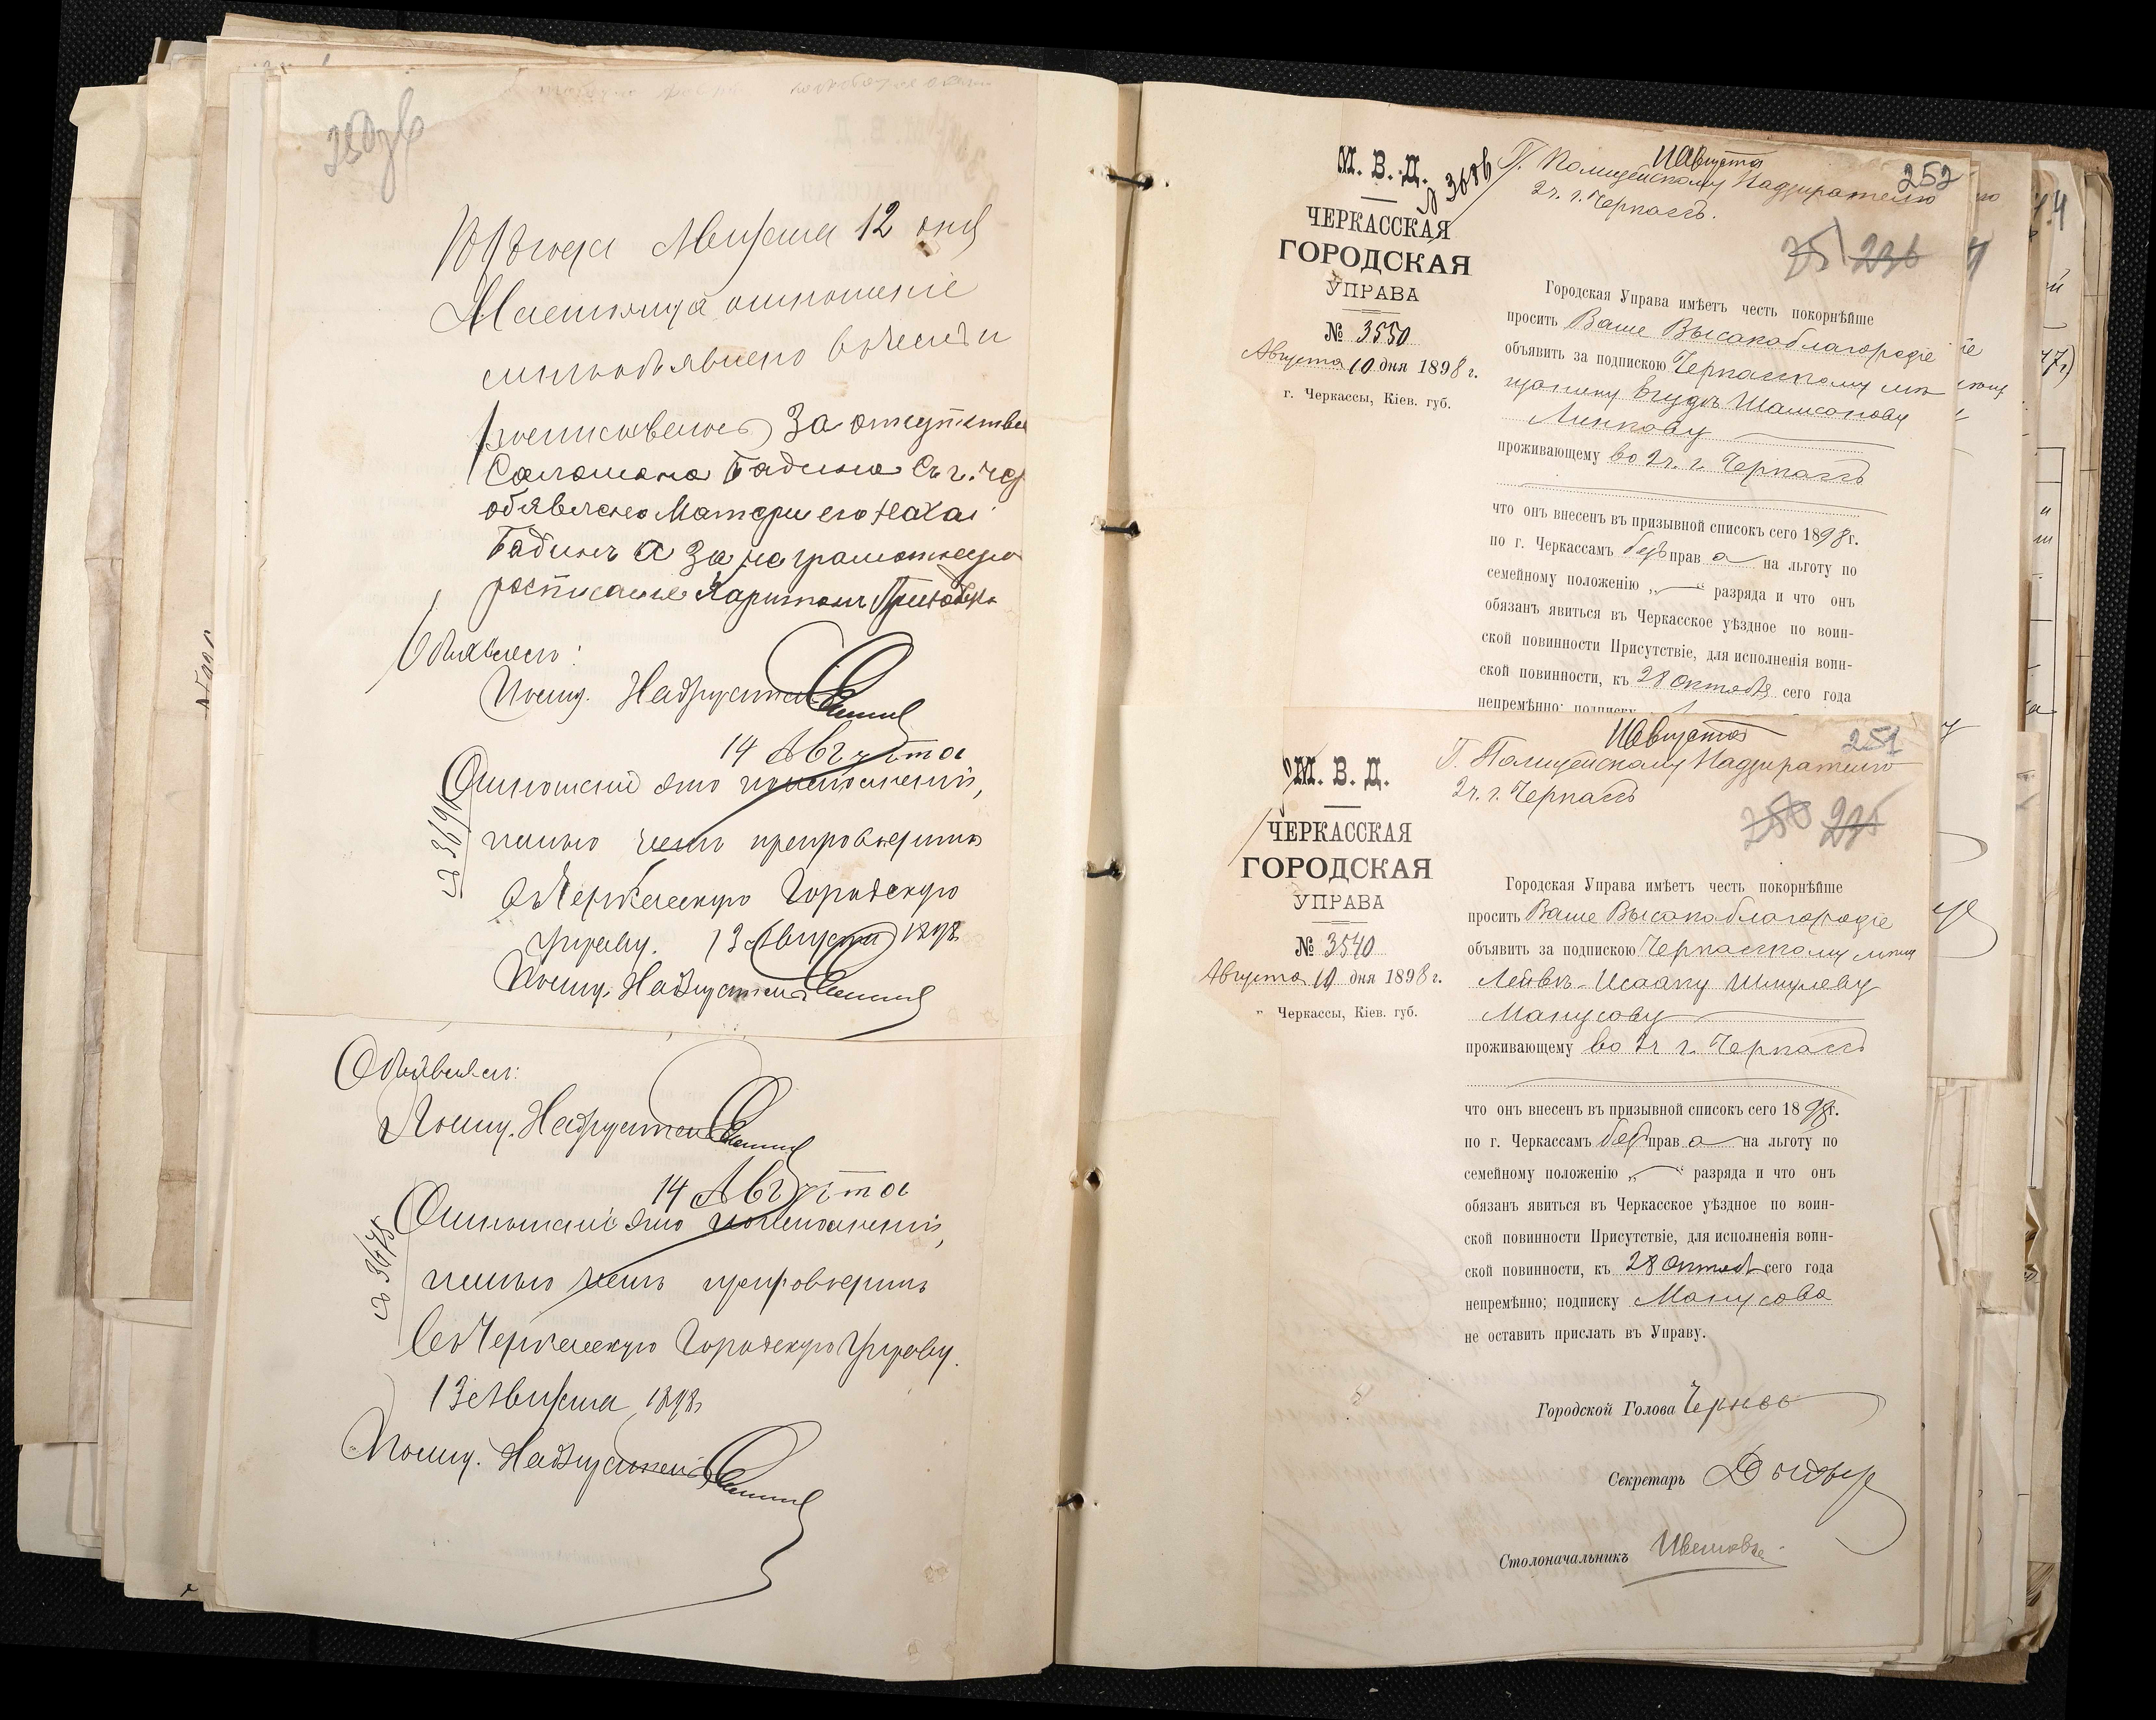 250 зв
1898 года Августа 12 дня
Настоящее отношение
мне объявлено в чем и
росписываюсь За отсутствием
Соломона Бадина въ г. Чер
обявлено Матери его Нахаі
Бадинъ а За не грамотную
росписался Харитонъ
Объявилъ:
Полиц. Надзиратель
14 Августа
Отношеніе это по исполненіи,
честь имѣю препроводить
№ 3690
въ Черкасскую Городскую
Управу. 13 Августа 1898
Полиц. Надзиратель
Объявилъ:
Полиц. Надзиратель
14 Августа
Отношеніе это по исполненіи,
честь имѣю препроводить
№ 3675
въ Черкасскую Городскую Управу.
13 Августа 1898
Полиц. Надзиратель
М. В. Д.
№ 3686
ЧЕРКАССКАЯ
ГОРОДСКАЯ
УПРАВА
№ 3550
Августа 10 дня 1898 г.
г. Черкассы, Кіев. губ.
11 Августа
252
Г. Полицейскому Надзирателю
2 ч. г. Черкассъ.
251 236
Городская Управа имѣетъ честь покорнѣйше
просить Ваше Высокоблагородіе
объявить за подпискою Черкасскому мѣ
щанину Іудѣ Шамсонову
Линкову
проживающему во 2 ч. г. Черкассъ
что онъ внесенъ въ призывной списокъ сего 1898 г.
по г. Черкассамъ безъ прав а на льготу по
семейному положенію „—“ разряда и что онъ
обязанъ явиться въ Черкасское уѣздное по воин-
ской повинности Присутствіе, для исполненія воин-
ской повинности, къ 28 октября сего года
непремѣнно; подписку
М. В. Д.
ЧЕРКАССКАЯ
ГОРОДСКАЯ
УПРАВА
№ 3540
Августа 10 дня 1898 г.
г. Черкассы, Кіев. губ.
11 Августа
251
Г. Полицейскому Надзирателю
2 ч. г. Черкассъ
250 235
Городская Управа имѣетъ честь покорнѣйше
просить Ваше Высокоблагородіе
объявить за подпискою Черкасскому мѣщ
Лейбѣ-Исааку Шмулеву
Манусову
проживающему во 2 ч г. Черкассъ
что онъ внесенъ въ призывной списокъ сего 1898 г.
по г. Черкассамъ безъ прав а на льготу по
семейному положенію „—“ разряда и что онъ
обязанъ явиться въ Черкасское уѣздное по воин-
ской повинности Присутствіе, для исполненія воин-
ской повинности, къ 28 октяб сего года
непремѣнно; подписку Манусова
не оставить прислать въ Управу.
Городской Голова
Секретарь
Столоначальникъ